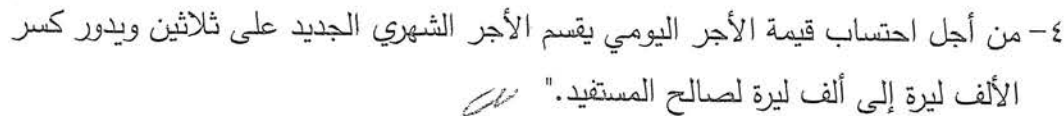 ٤- من أجل احتساب قيمة الأجر اليومي يقسم الأجر الشهري الجديد على ثلاثين ويدور كسر
الألف ليرة إلى ألف ليرة لصالح المستفيد."